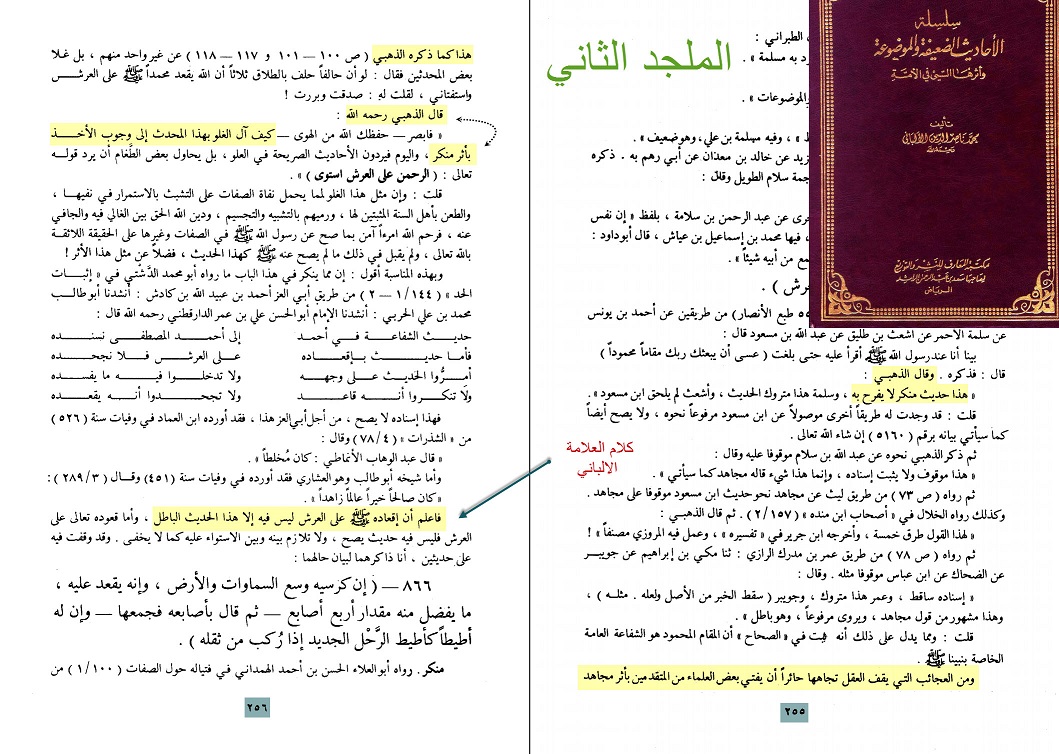 سلسلة
الأحاديث الضعيفة والموضوعة
وأثرها السيئ في الأمة
تأليف
محمد ناصر الدين الألباني
مكتبة المعارف للنشر والتوزيع
لصاحبها سعد بن عبد الرحمن الراشد
الرياض
الملجد الثاني
الطبراني :
د به مسلمة » .
الموضوعات » .
» ، وفيه مسلمة بن علي، وهو ضعيف » .
زيد عن خالد بن معدان عن أبي رهم به . ذكره
جمة سلام الطويل وقال :
خرى عن عبد الرحمن بن سلامة ، بلفظ « إن نفس
، فيها محمد بن إسماعيل بن عياش ، قال أبو داود :
مع من أبيه شيئاً » .
رش ) .
طبع الأنصار) من طريقين عن أحمد بن يونس
عن سلمة الأحمر عن أشعث بن طليق عن عبد الله بن مسعود قال :
بينا أنا عند رسول الله ﷺ أقرأ عليه حتى بلغت ( عسى أن يبعثك ربك مقاماً محموداً )
قال : فذكره . وقال الذهبي :
« هذا حديث منكر لا يفرح به ، وسلمة هذا متروك الحديث ، وأشعث لم يلحق ابن مسعود » .
قلت : قد وجدت له طريقاً أخرى موصولاً عن ابن مسعود مرفوعاً نحوه ، ولا يصح أيضاً
كما سيأتي بيانه برقم ( ٥١٦٠ ) إن شاء الله تعالى .
ثم ذكر الذهبي نحوه عن عبد الله بن سلام موقوفا عليه وقال :
« هذا موقوف ولا يثبت إسناده ، وإنما هذا شيء قاله مجاهد كما سيأتي » .
ثم رواه ( ص ٧٣ ) من طريق ليث عن مجاهد نحو حديث ابن مسعود موقوفا على مجاهد .
وكذلك رواه الخلال في « أصحاب ابن منده » ( ١٥٧/٢ ) . ثم قال الذهبي :
« لهذا القول طرق خمسة ، وأخرجه ابن جرير في « تفسيره » ، وعمل فيه المروزي مصنفاً » !
ثم رواه ( ص ٧٨ ) من طريق عمر بن مدرك الرازي : ثنا مكي بن إبراهيم عن جويبر
عن الضحاك عن ابن عباس موقوفا مثله . وقال :
« إسناده ساقط ، وعمر هذا متروك ، وجويبر ( سقط الخبر من الأصل ولعله . مثلـه ) ،
وهذا مشهور من قول مجاهد ، ويروى مرفوعاً ، وهو باطل » .
قلت : ومما يدل على ذلك أنه ثبت في « الصحاح » أن المقام المحمود هو الشفاعة العامة
الخاصة بنبينا ﷺ .
ومن العجائب التي يقف العقل تجاهها حائراً أن يفتي بعض العلماء من المتقدمين بأثر مجاهد
٢٥٥
كلام العلامة
الالباني
هذا كما ذكره الذهبي ( ص ١٠٠ – ١٠١ و ١١٧ – ١١٨ ) عن غير واحد منهم ، بل غـلا
بعض المحدثين فقال : لو أن حالفاً حلف بالطلاق ثلاثاً أن الله يقعد محمداً ﷺ على العرش
واستفتاني ، لقلت له : صدقت وبررت !
قال الذهبي رحمه الله :
« فابصر – حفظك الله من الهوى – كيف آل الغلو بهذا المحدث إلى وجوب الأخـذ
بأثر منكر ، واليوم فيردون الأحاديث الصريحة في العلو ، بل يحاول بعض الطَّغام أن يرد قولـه
تعالى : ( الرحمن على العرش استوى ) » .
قلت : وإن مثل هذا الغلو لمما يحمل نفاة الصفات على التشبث بالاستمرار في نفيهـا ،
والطعن بأهل السنة المثبتين لها ، ورميهم بالتشبيه والتجسيم ، ودين الله الحق بين الغالي فيه والجافي
عنه ، فرحم الله امرءاً آمن بما صح عن رسول الله ﷺ في الصفات وغيرها على الحقيقة اللائقـة
بالله تعالى ، ولم يقبل في ذلك ما لم يصح عنه ﷺ كهذا الحديث ، فضلاً عن مثل هذا الأثر !
وبهذه المناسبة أقول : إن مما ينكر في هذا الباب ما رواه أبو محمد الدَّشتي في « إثبـات
الحد » ( ١٤٤/١ – ٢ ) من طريق أبي العز أحمد بن عبيد الله بن كادش : أنشدنا أبو طالـب
محمد بن علي الحربي : أنشدنا الإمام أبو الحسن علي بن عمر الدارقطني رحمه الله قال :
حديـث الشفاعـة في أحمـد إلى أحمـد المصطفـى نسنـده
فأما حديـث بـإقعـاده على العرش فـلا نجحـده
أمـرُّوا الحديث علـى وجهـه ولا تدخلـوا فيـه ما يفسـده
ولا تنكـروا أنـه قاعـد ولا تجحـدوا أنـه يقعـده
فهذا إسناده لا يصح ، من أجل أبي العز هذا ، فقد أورده ابن العماد في وفيات سنة ( ٥٢٦ )
من « الشذرات » ( ٧٨/٤ ) وقال :
« قال عبد الوهاب الأنماطي : كان مُخلطاً » .
وأما شيخه أبو طالب وهو العشاري فقد أورده في وفيات سنة (٤٥١) وقـال ( ٢٨٩/٣ ) :
« كان صالحاً خيراً عالماً زاهداً » .
فاعلم أن إقعاده ﷺ على العرش ليس فيه إلا هذا الحديث الباطل ، وأما قعوده تعالى على
العرش فليس فيه حديث يصح ، ولا تلازم بينه وبين الاستواء عليه كما لا يخفى . وقد وقفت فيه
على حديثين ، أنا ذاكرهما لبيان حالهما :
٨٦٦ – ( إن كرسيه وسع السماوات والأرض ، وإنه يقعد عليه ،
ما يفضل منه مقدار أربع أصابع – ثم قال بأصابعه فجمعها – وإن له
أطيطاً كأطيط الرَّحْل الجديد إذا رُكب من ثقله ) .
منكر . رواه أبو العلاء الحسن بن أحمد الهمداني في فتياله حول الصفات ( ١٠٠/١ ) من
٢٥٦